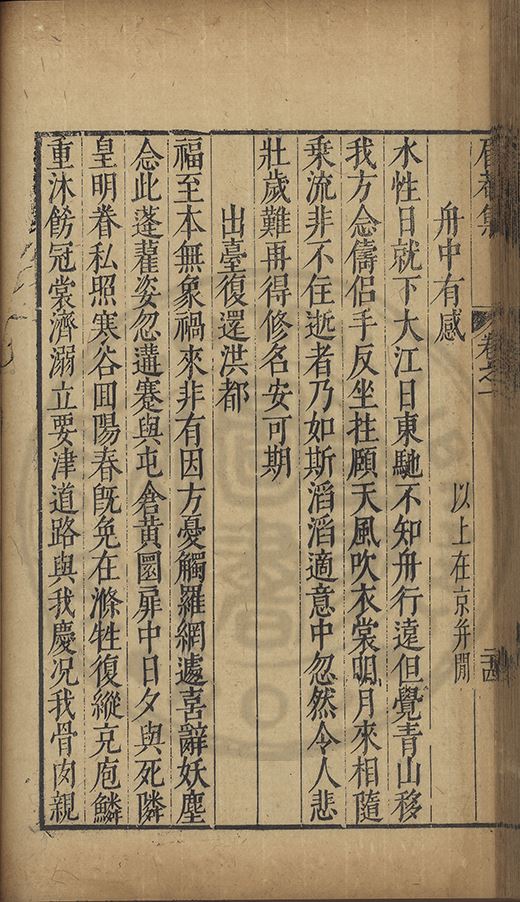 眉菴集 卷之一
舟中有感 以上在京并閒
水性日就下大江日東馳不知舟行遠但覺青山移
我方念儔侶手反坐拄頤天風吹衣裳明月來相隨
乗流非不住逝者乃如斯滔滔適意中忽然令人悲
壯歲難再得修名安可期
出臺復還洪都
福至本無象禍來非有因方憂觸羅網遽喜辭妖塵
念此蓬藋姿忽遘蹇與屯倉黄圜扉中日夕與死隣
皇明眷私照寒谷囬陽春旣免在滌牲復縱充庖鱗
重沐餝冠裳濟溺立要津道路與我慶况我骨肉親